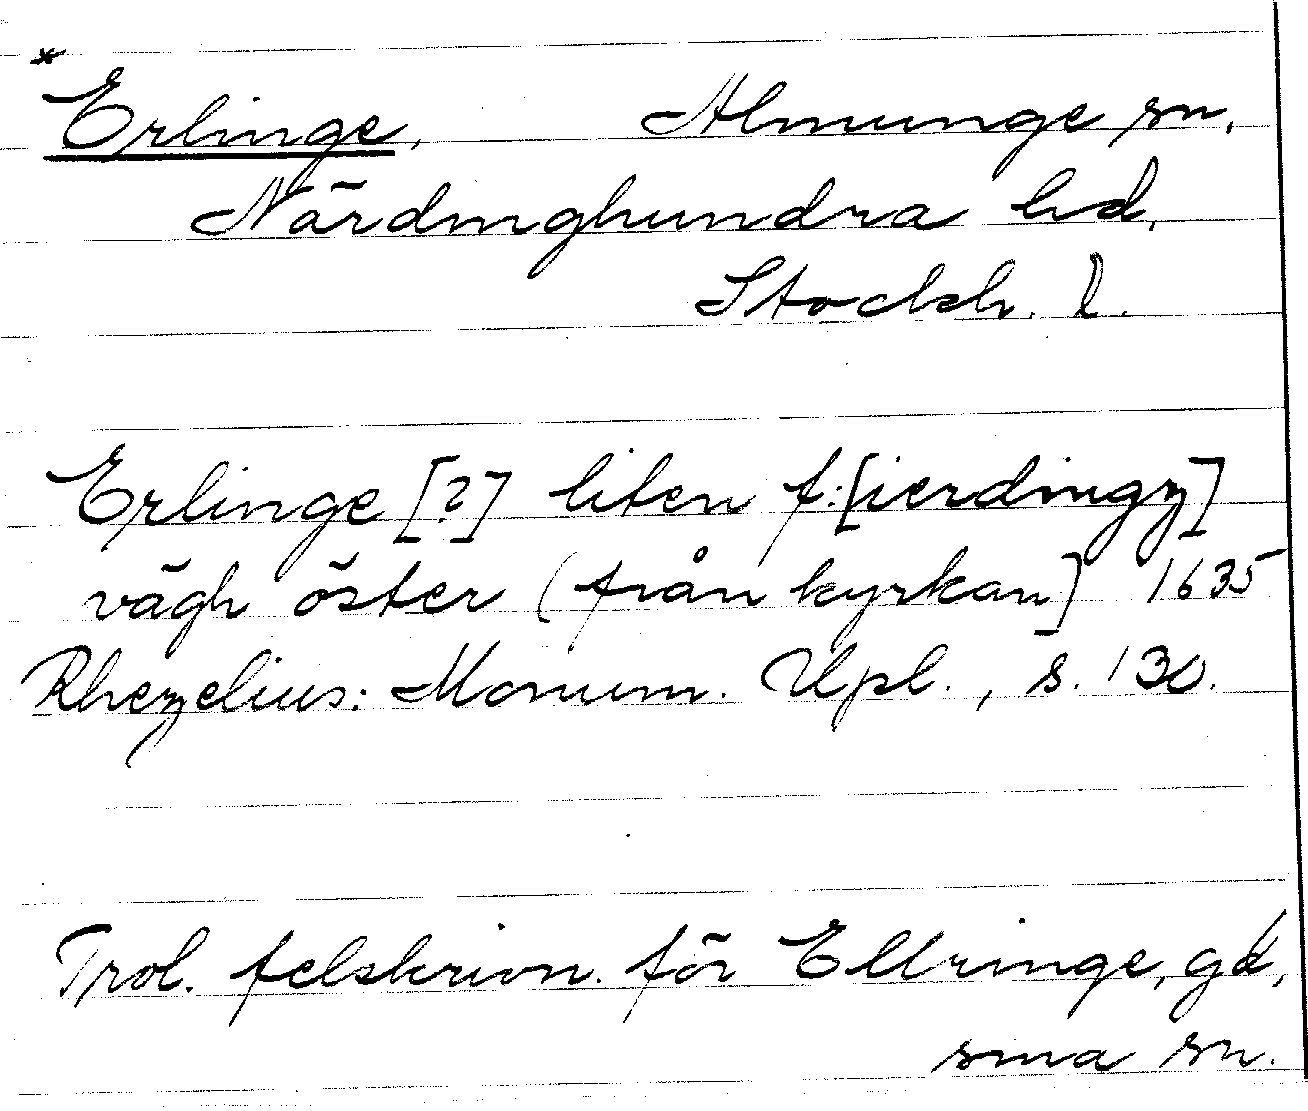 * Erlinge, Almunge sn,
Närdinghundra hd,
Stockh. l.
Erlinge [?] liten f:[ierdingz]
vägh öster (från kyrkan] 1635
Rhezelius: Monum. Upl., s. 130.
Trol. felskrivn. för Ellringe, gd,
sma sn.